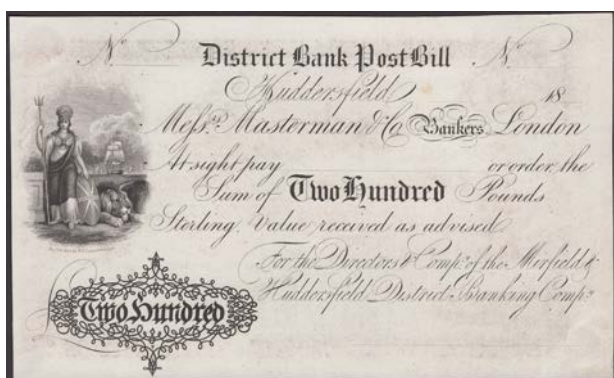 No District Bank Post Bill No
Huddersfield 18
Messrs. Masterman & Co Bankers London
At sight pay or order, the
Sum of Two Hundred Pounds
Sterling, Value received as advised
For the Directors & Compy. of the Mirfield &
Huddersfield District Banking Compy.
£ Two Hundred